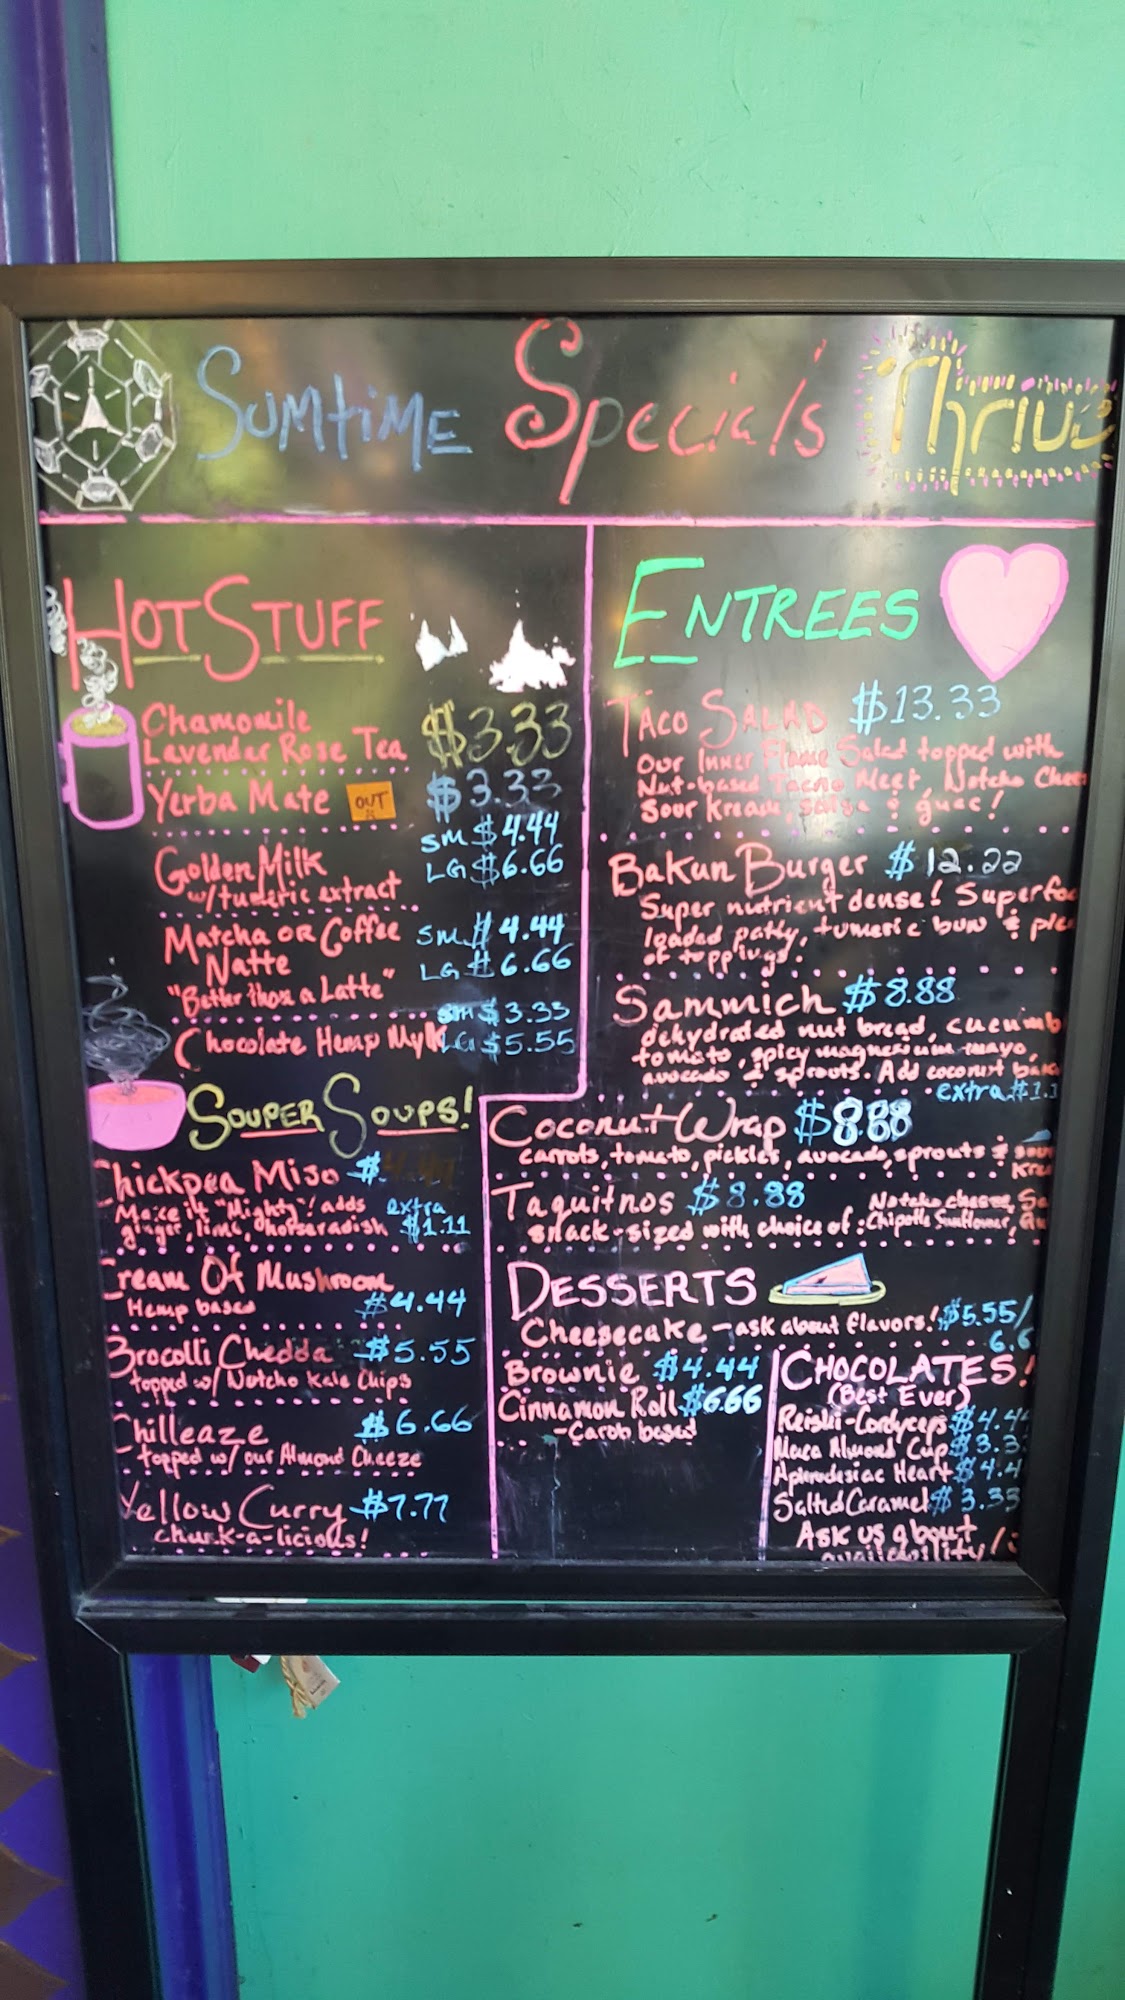 Sumtime Specials Thrive
Hot Stuff
Chamomile
Lavender Rose Tea $3.33
Yerba Mate OUT $3.33
Golden Milk SM $4.44
w/tumeric extract LG $6.66
Matcha OR Coffee SM $4.44
Natte LG $6.66
"Better than a Latte"
SM $3.33
Chocolate Hemp Mylk LG $5.55
Souper Soups!
Chickpea Miso $4.44
Make it "Mighty"! adds extra
ginger, lime, horseradish $1.11
Cream Of Mushroom
Hemp based $4.44
Brocolli Chedda $5.55
topped w/ Notcho Kale Chips
Chilleaze $6.66
topped w/ our Almond Cheeze
Yellow Curry $7.77
chunk-a-licious!
Entrees
Taco Salad $13.33
Our Inner Flame Salad topped with
Nut-based Tacno Meet, Notcho Chee
Sour Kream, salsa & guac!
Bakun Burger $12.22
Super nutrient dense! Superfoo
loaded patty, tumeric bun &
of toppings.
Sammich $8.88
dehydrated nut bread, cucumb
tomato, spicy magnesium mayo,
avocado & sprouts. Add coconut bak
extra $1.1
Coconut Wrap $8.88
carrots, tomato, pickles, avocado, sprouts & sour
Kre
Taquitnos $8.88 Notcho cheese, Sa
snack-sized with choice of: Chipotle Sunflower,
Desserts
Cheesecake - ask about flavors! $5.55/
6.6
Brownie $4.44
Cinnamon Roll $6.66
- Carob based
Chocolates!
(Best Ever)
Reishi-Cordyceps $4.4
Maca Almond Cup $3.3
Aphrodesiac Heart $4.4
Salted Caramel $3.33
Ask us about
availability/